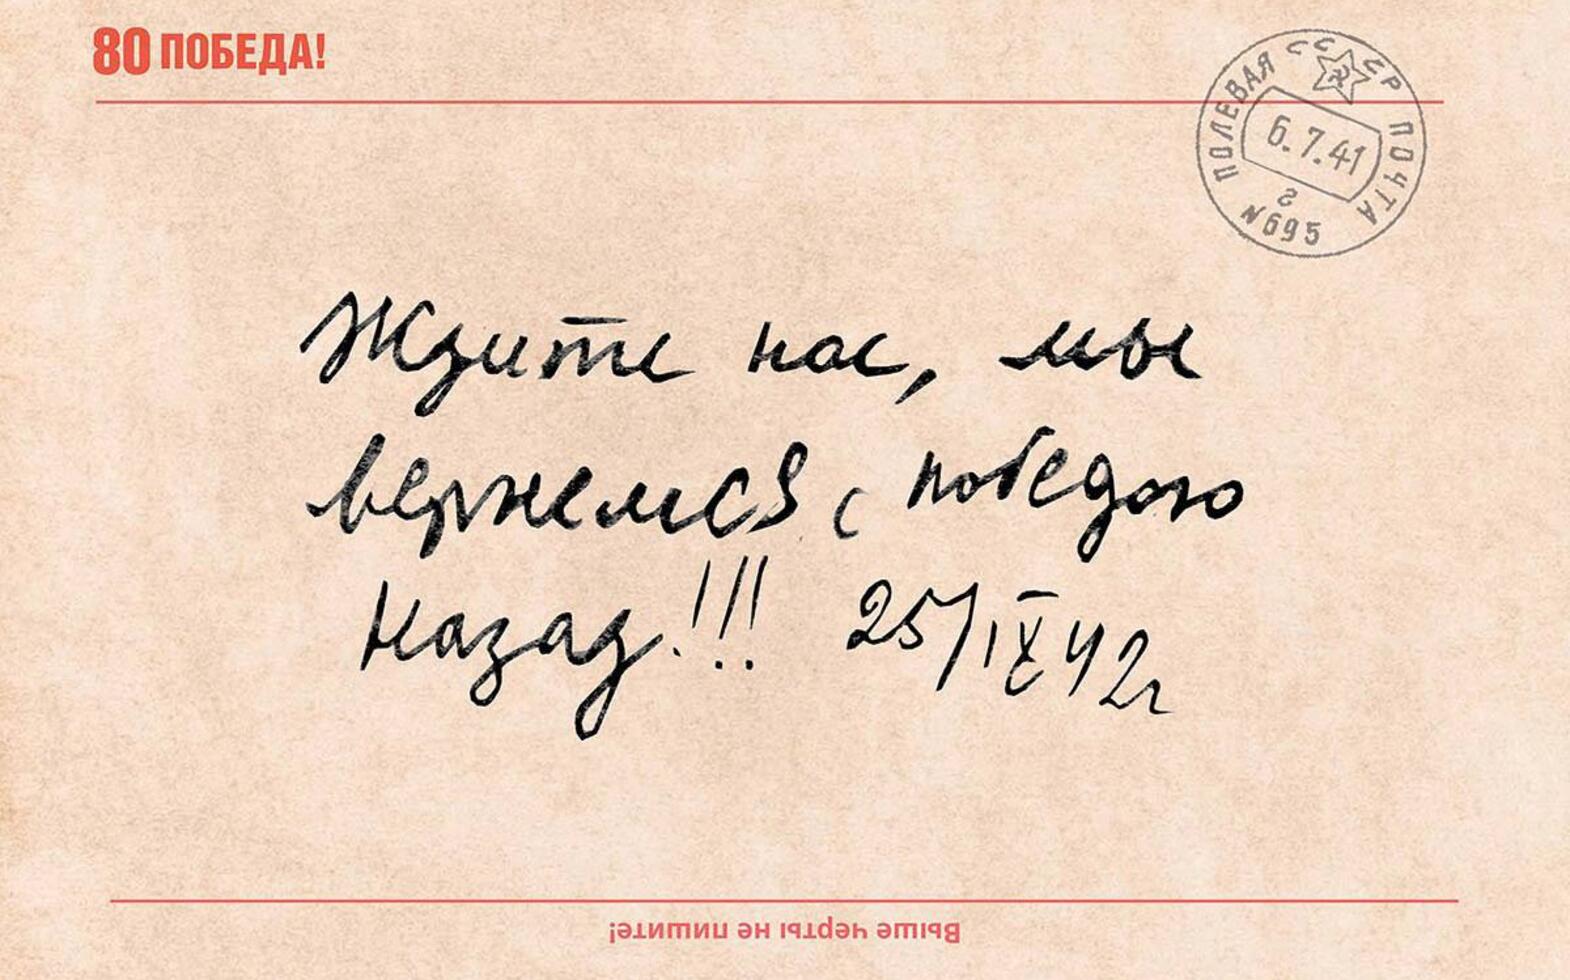 80 ПОБЕДА!
ПОЛЕВАЯ СССР ПОЧТА
6.7.41
г
N695
Ждите нас, мы
вернемся с победою
назад!!! 25/IX 42г
Выше черты не пишите!